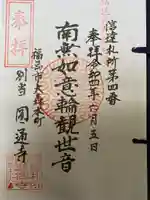 信達札所第四番
奉拝 令和四年六月五日
南無如意輪観世音
福島市大森本町
別当 圓通寺
奉拝